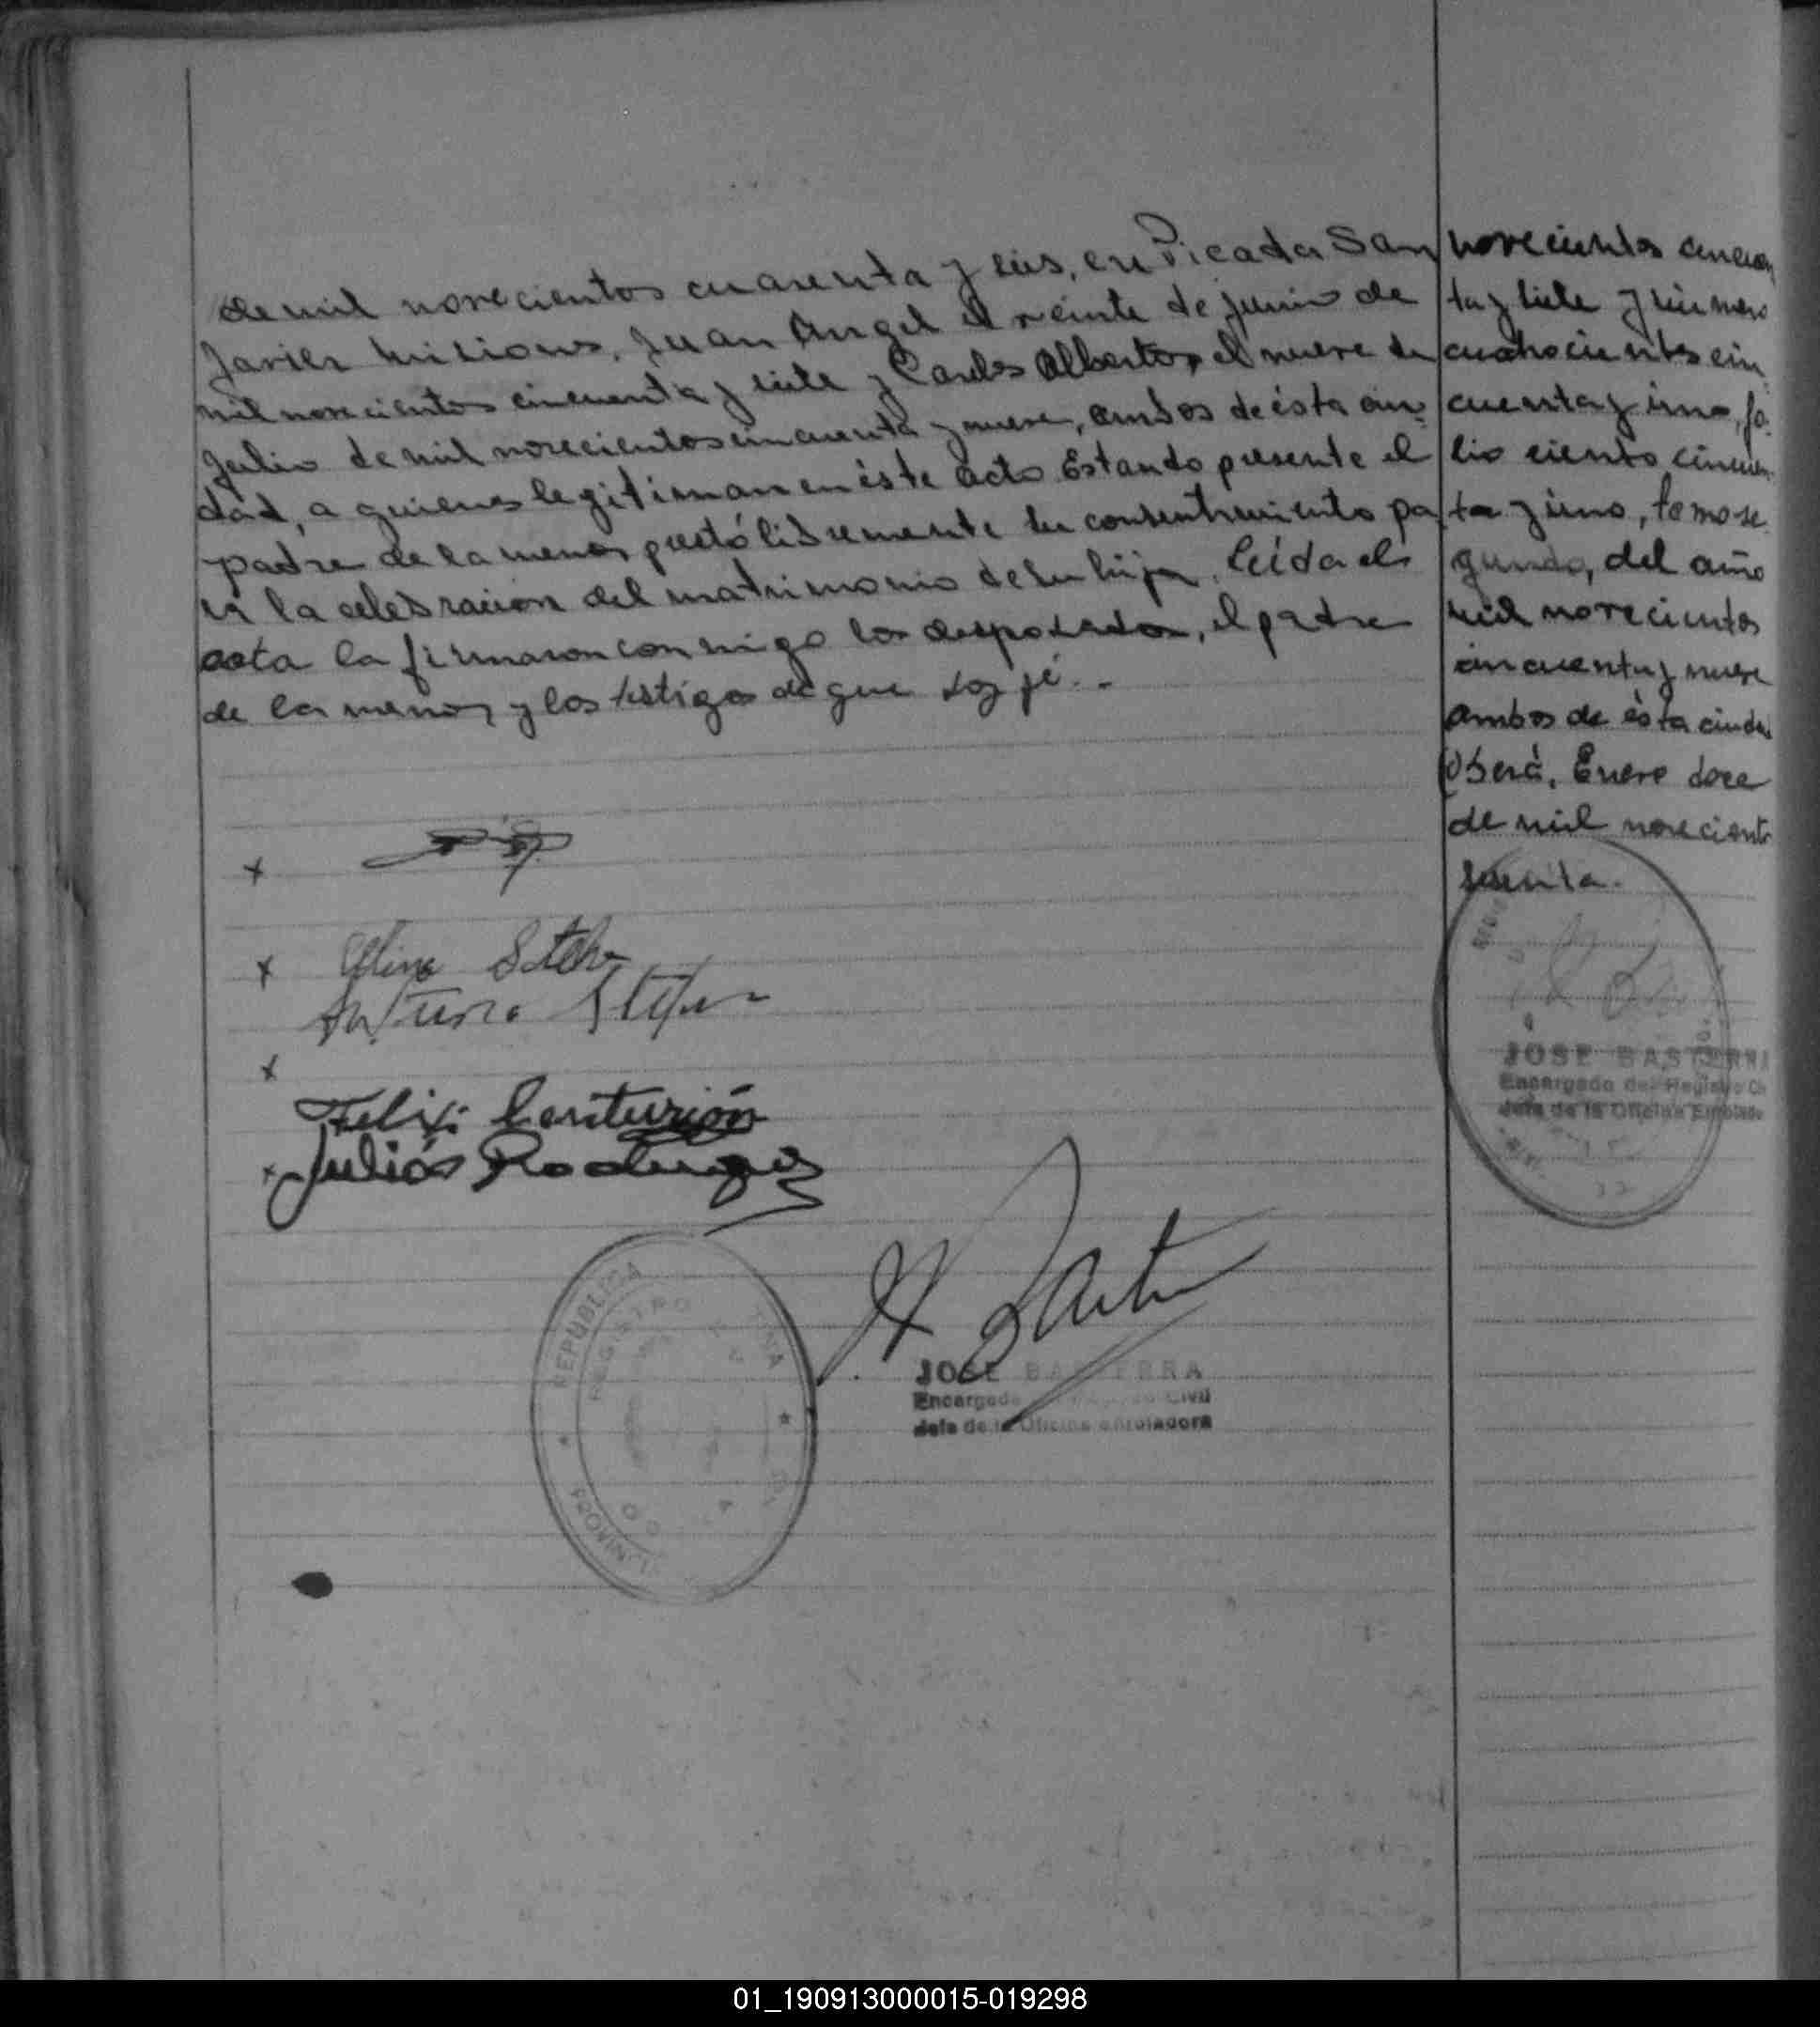 de mil novecientos cuarenta y seis, en Picada San
Javier Misiones, Juan Angel el veinte de junio de
mil novecientos cincuenta y siete y Carlos Alberto, el nueve de
julio de mil novecientos cincuenta y nueve, ambos de ésta ciu-
dad, a quienes legitiman en éste acto Estando presente el
padre de la menor prestó libremente su consentimiento pa
ra la celebracion del matrimonio de su hija. Leída el
acta la firmaron conmigo los desposados, el padre
de la menor y los testigos de que doy fé.-
novecientos cincuen
ta y siete y número
cuatrocientos cin
cuenta y uno, fo-
lio ciento cincuen-
ta y uno, tomo se
gundo, del año
mil novecientos
cincuenta y nueve
ambos de ésta ciudad
Oberá, Enero doce
de mil novecientos
sesenta.
x
x
Arturo
x
Felix Centurión
x Julián Rodriguez
REPUBLICA
REGISTRO
PROVINCIA
JOSE BASTERRA
Encargado Civil
Jefe de la Oficina enroladora
JOSE BASTERRA
Encargado del Registro Ci
Jefe de la Oficina Enrolado
01_190913000015-019298